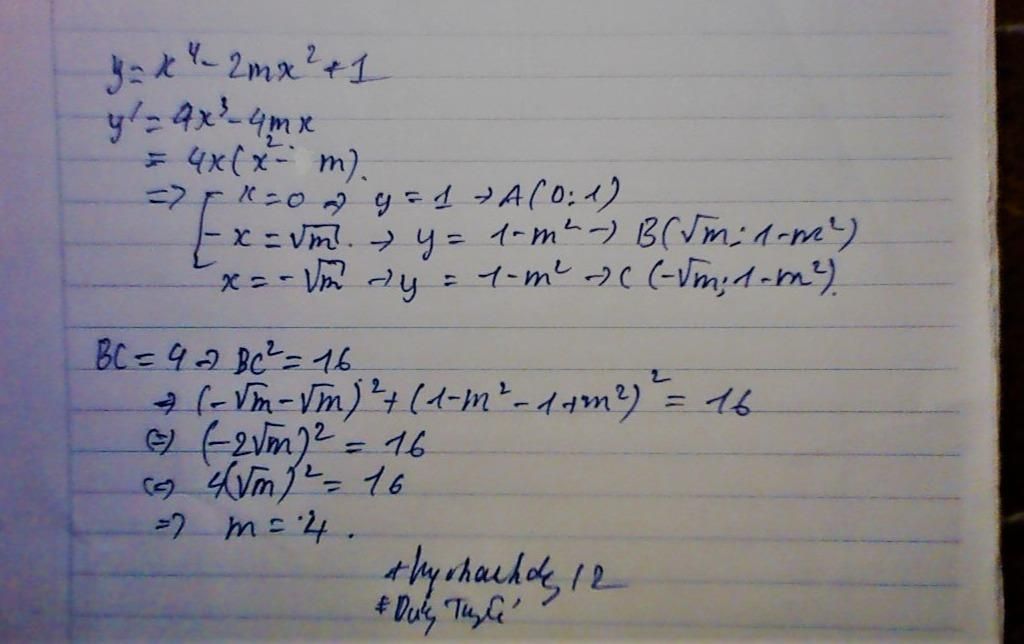 y = x⁴ - 2mx² + 1
y' = 4x³ - 4mx
= 4x(x² - m).
=> [ x = 0 → y = 1 → A(0; 1)
- x = √m. → y = 1 - m² → B(√m; 1-m²)
x = -√m → y = 1 - m² → C(-√m; 1-m²).
BC = 4 → BC² = 16
→ (-√m - √m)² + (1-m² - 1+m²)² = 16
<=> (-2√m)² = 16
<=> 4(√m)² = 16
=> m = 4.
12